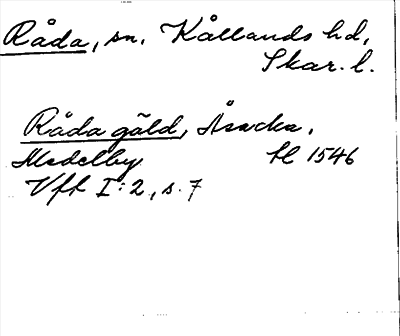 Råda, sn. Kållands hd,
Skar. l.
Råda gäld, Åsacka,
Medelby hl 1546
Vfh I:2, s. 7